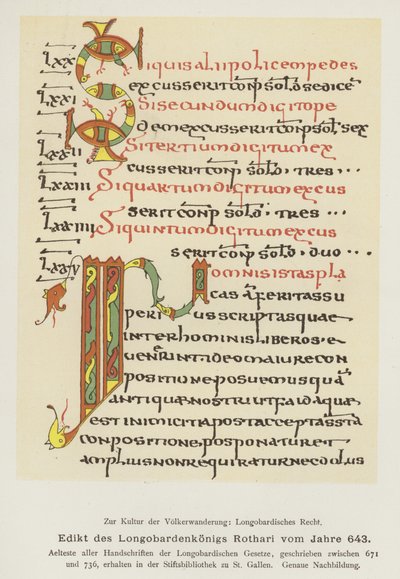 LXX Siquis alii policem pedes
excusserit conp sold sedece
LXXI Si secundum digito pe
dem excusserit conp sol sex
LXXII Si tertium digitum ex
cusserit conp sold · tres · · ·
LXXIII Si quartum digitum excus
serit conp sold · tres · · ·
LXXIIII Si quintum digitum excus
serit conp sold · duo · · ·
LXXV In omnis istas pla
cas feritas su
perius scriptas quae
inter hominis liberos e
venerint ideo maiure con
positione posuemus quā
antiquae nostri ut faida quę
est inimicitia post accepta ssta
conpositione posponatur et
amplius non requiratur nec dolus
Zur Kultur der Völkerwanderung: Longobardisches Recht.
Edikt des Longobardenkönigs Rothari vom Jahre 643.
Aelteste aller Handschriften der Longobardischen Gesetze, geschrieben zwischen 671
und 736, erhalten in der Stiftsbibliothek zu St. Gallen. Genaue Nachbildung.